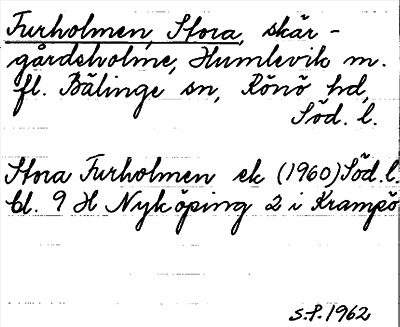 Furholmen, Stora, skär-
gårdsholme, Humlevik m.
fl. Bälinge sn, Rönö hd,
Söd. l.
Stora Furholmen ek (1960) Söd. l.
bl. 9 H Nyköping 2 i Krampö
S.P. 1962